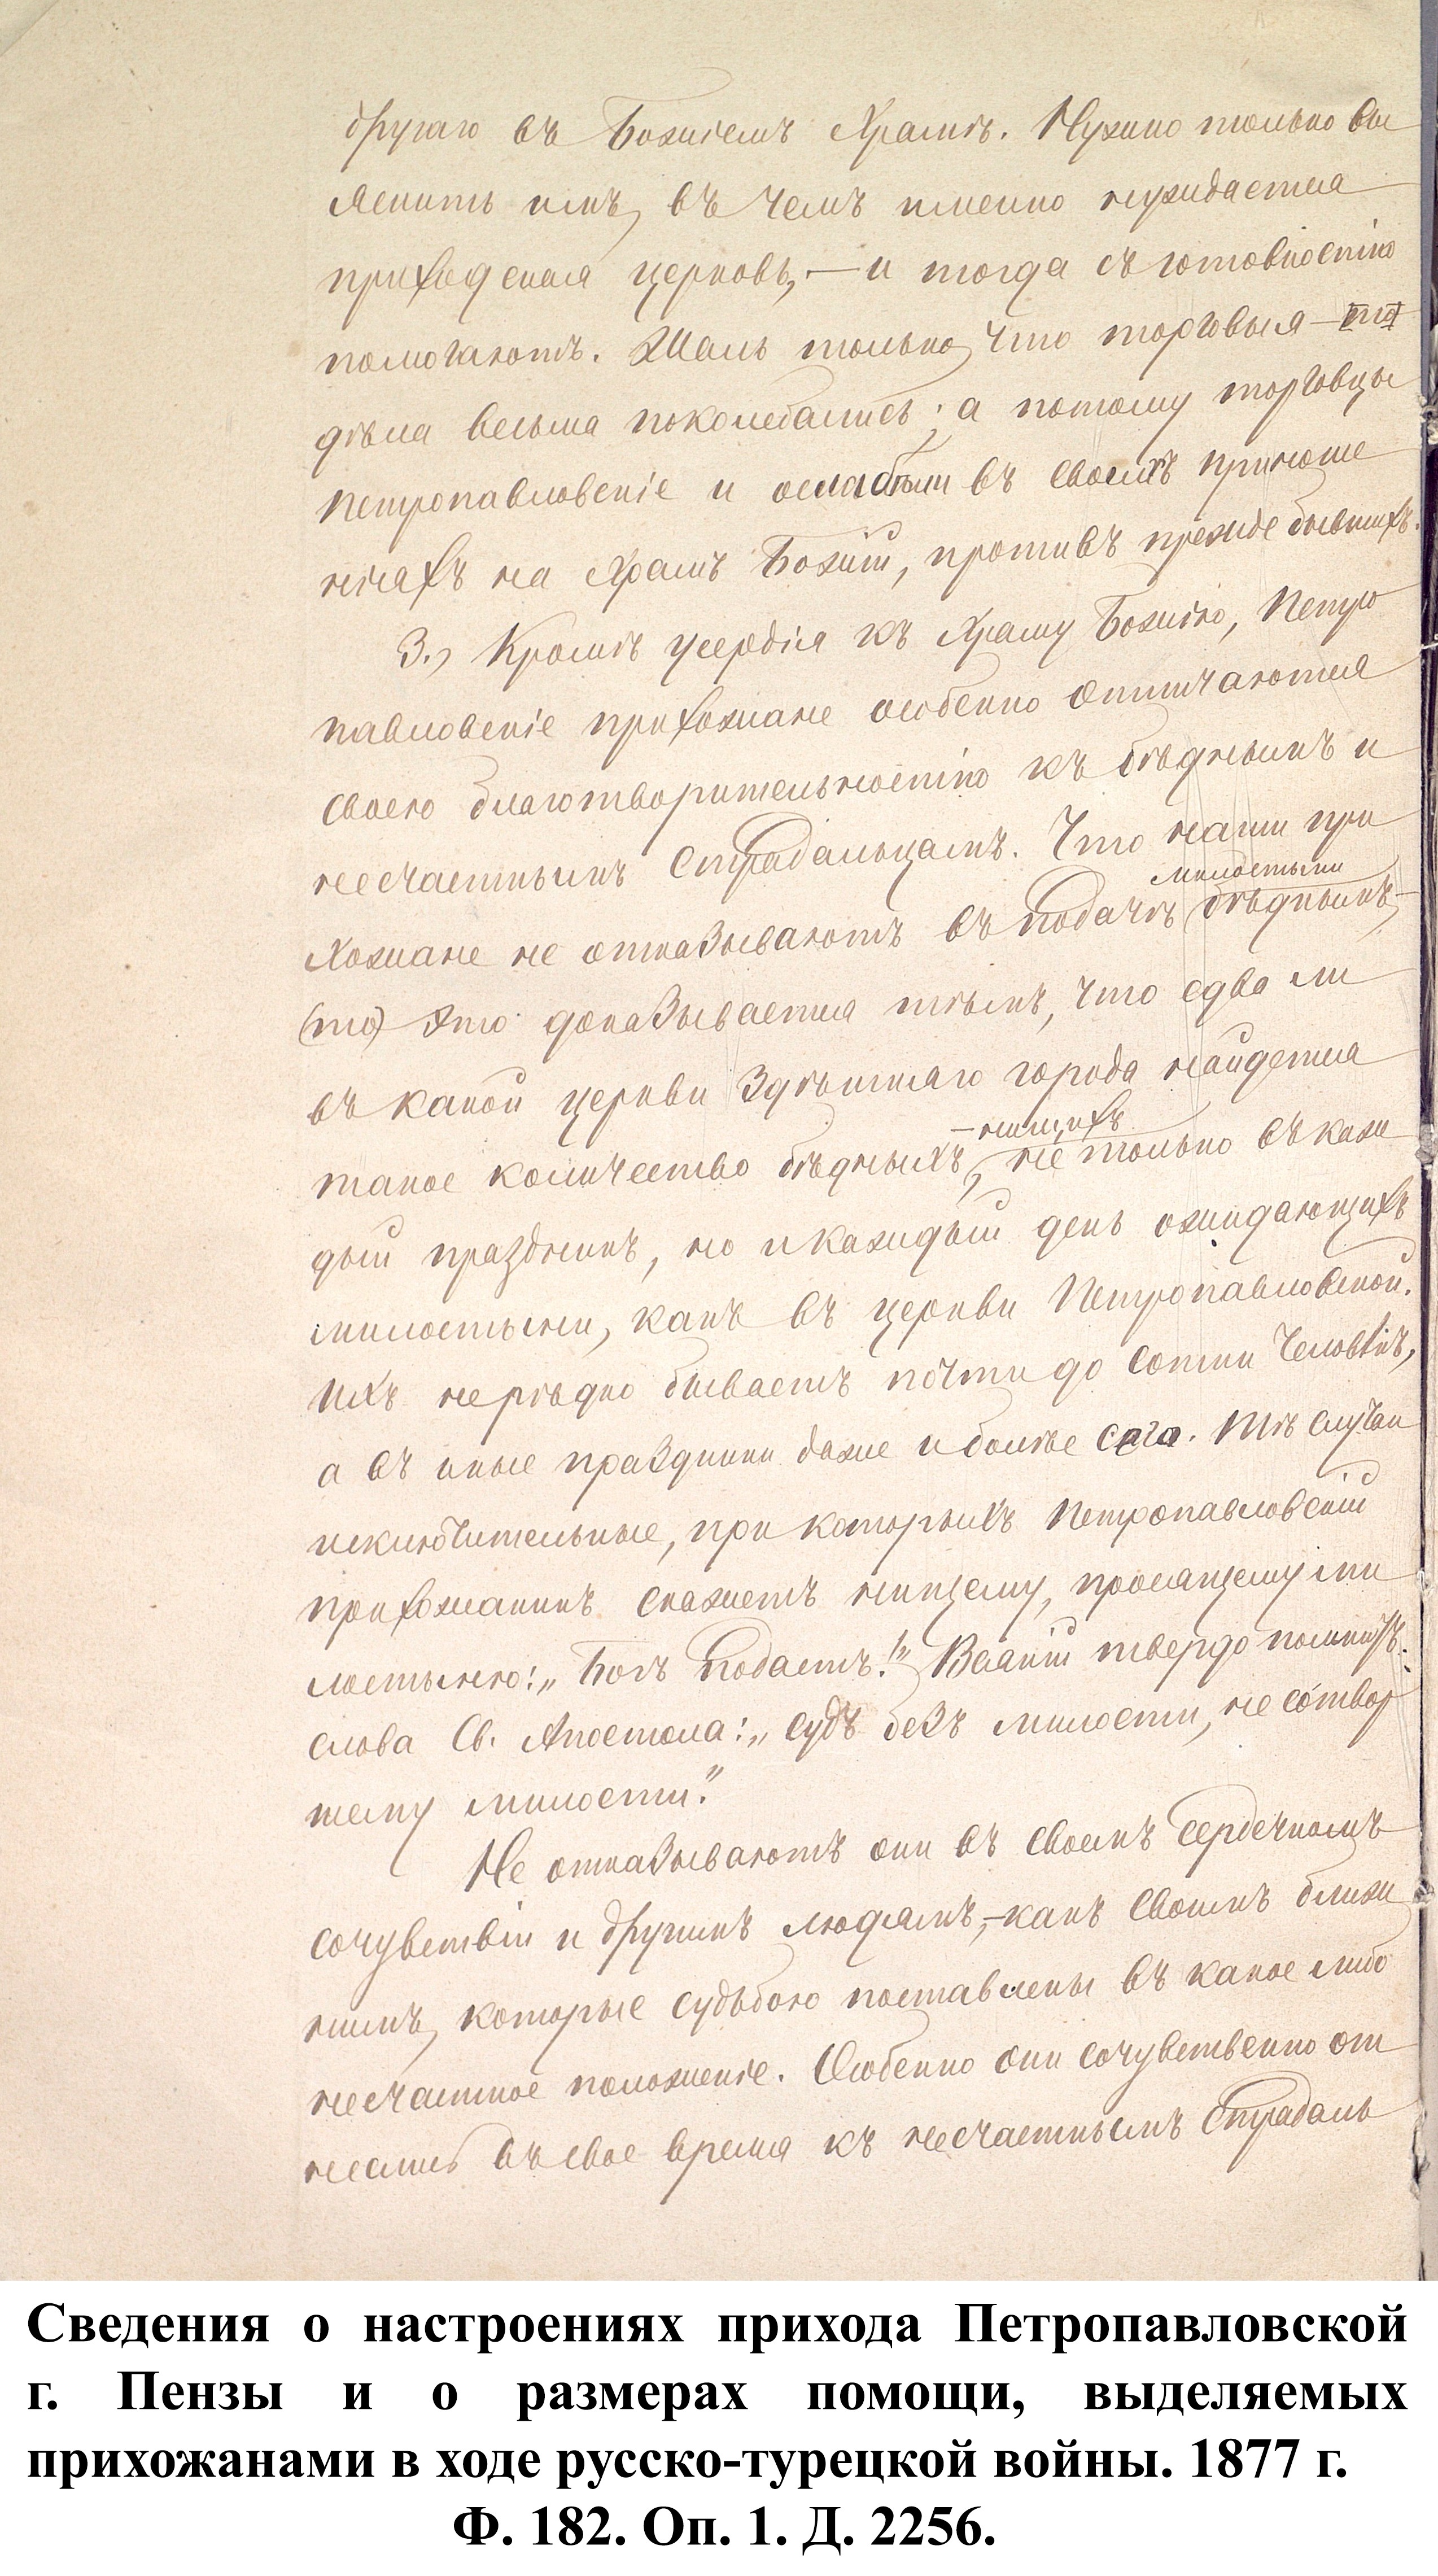 другаго въ Божіемъ Храмѣ. Нужно только вы
яснить имъ, въ чемъ именно нуждается
приходская церковь, — и тогда съ готовностію
помогаютъ. Жаль только, что торговыя
дѣла весьма поколебались; а потому торговцы
Петропавловскіе и ослабѣли въ своихъ приноше
ніяхъ на Храмъ Божій, противъ прежде бывшихъ.
3., Кромѣ усердія къ Храму Божію, Петро
павловскіе прихожане особенно отличаются
своею благотворительностію къ бѣднымъ и
несчастнымъ страдальцамъ. Что наши при
милостыни
хожане не отказываютъ въ подачѣ бѣднымъ,
(то) это доказывается тѣмъ, что едва ли
въ какой церкви здѣшняго города найдется
– нищихъ
такое количество бѣдныхъ, не только въ каж
дый праздникъ, но и каждый день ожидающихъ
милостыни, какъ въ церкви Петропавловской.
Ихъ нерѣдко бываетъ почти до сотни человѣкъ,
а въ иные праздники даже и болѣе ста. Тѣ случаи
исключительные, при которыхъ Петропавловскій
прихожанинъ скажетъ нищему, просящему ми
лостыню: „Богъ подастъ!" Всякій твердо помнитъ
слова Св. Апостола: „судъ безъ милости, не сотвор
шему милости."
Не отказываютъ они въ своемъ сердечномъ
сочувствіи и другимъ людямъ, – какъ своимъ ближ
нимъ, которые судьбою поставлены въ какое либо
несчастное положеніе. Особенно они сочувственно от
неслись въ свое время къ несчастнымъ страдаль
Сведения о настроениях прихода Петропавловской
г. Пензы и о размерах помощи, выделяемых
прихожанами в ходе русско-турецкой войны. 1877 г.
Ф. 182. Оп. 1. Д. 2256.